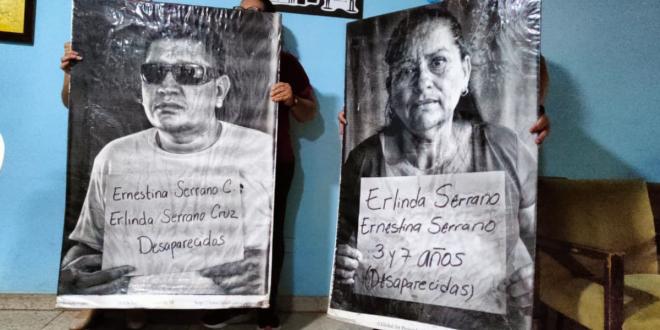 Ernestina Serrano C.
Erlinda Serrano Cruz
Desaparecidas
Erlinda Serrano
Ernestina Serrano
3 y 7 años
(Desaparecidas)